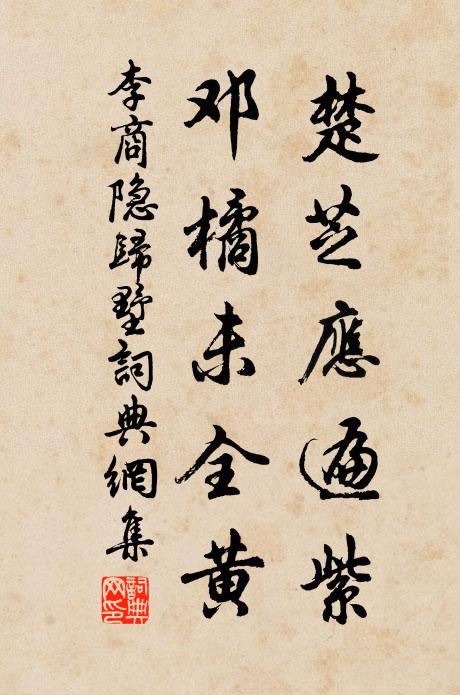 楚芝應遍紫
邓橘未全黄
李商隐歸墅詞典網集
詞典网印